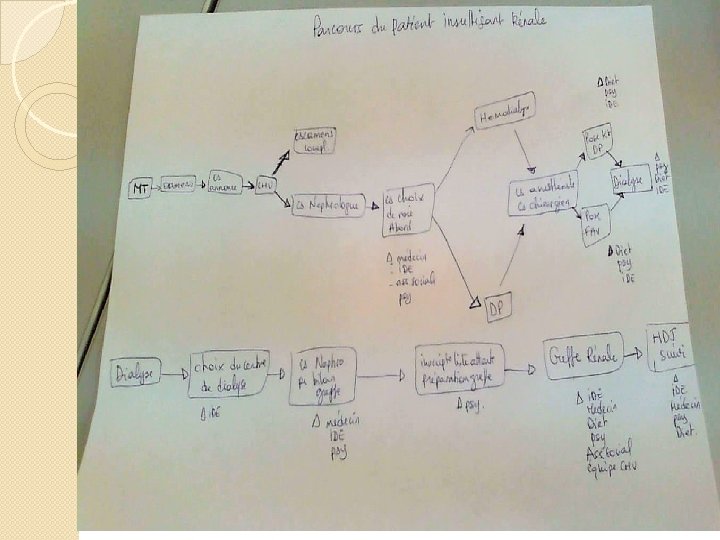 Parcours du patient insuffisant Rénale
Δ Diet
psy
IDE
Hemodialyse
examens
MT
examens
CS
annonce
CHU
CS Nephrologue
CS choix
de
Abord
Δ médecin
- IDE
- ass social
psy
DP
CS anesthésiste
CS chirurgien
Pose Kt
DP
Pose
FAV
Δ Diet
psy
IDE
Dialyse
Δ
psy
Diet
IDE
Dialyse
choix du centre
de dialyse
Δ IDE
CS Nephro
bilan
greffe
Δ médecin
IDE
psy
liste attente
préparation greffe
Δ psy.
Greffe Rénale
Δ IDE
Medecin
Diet
psy
Ass social
equipe CHU
HDJ
Suivi
Δ
IDE
Medecin
psy
Diet.